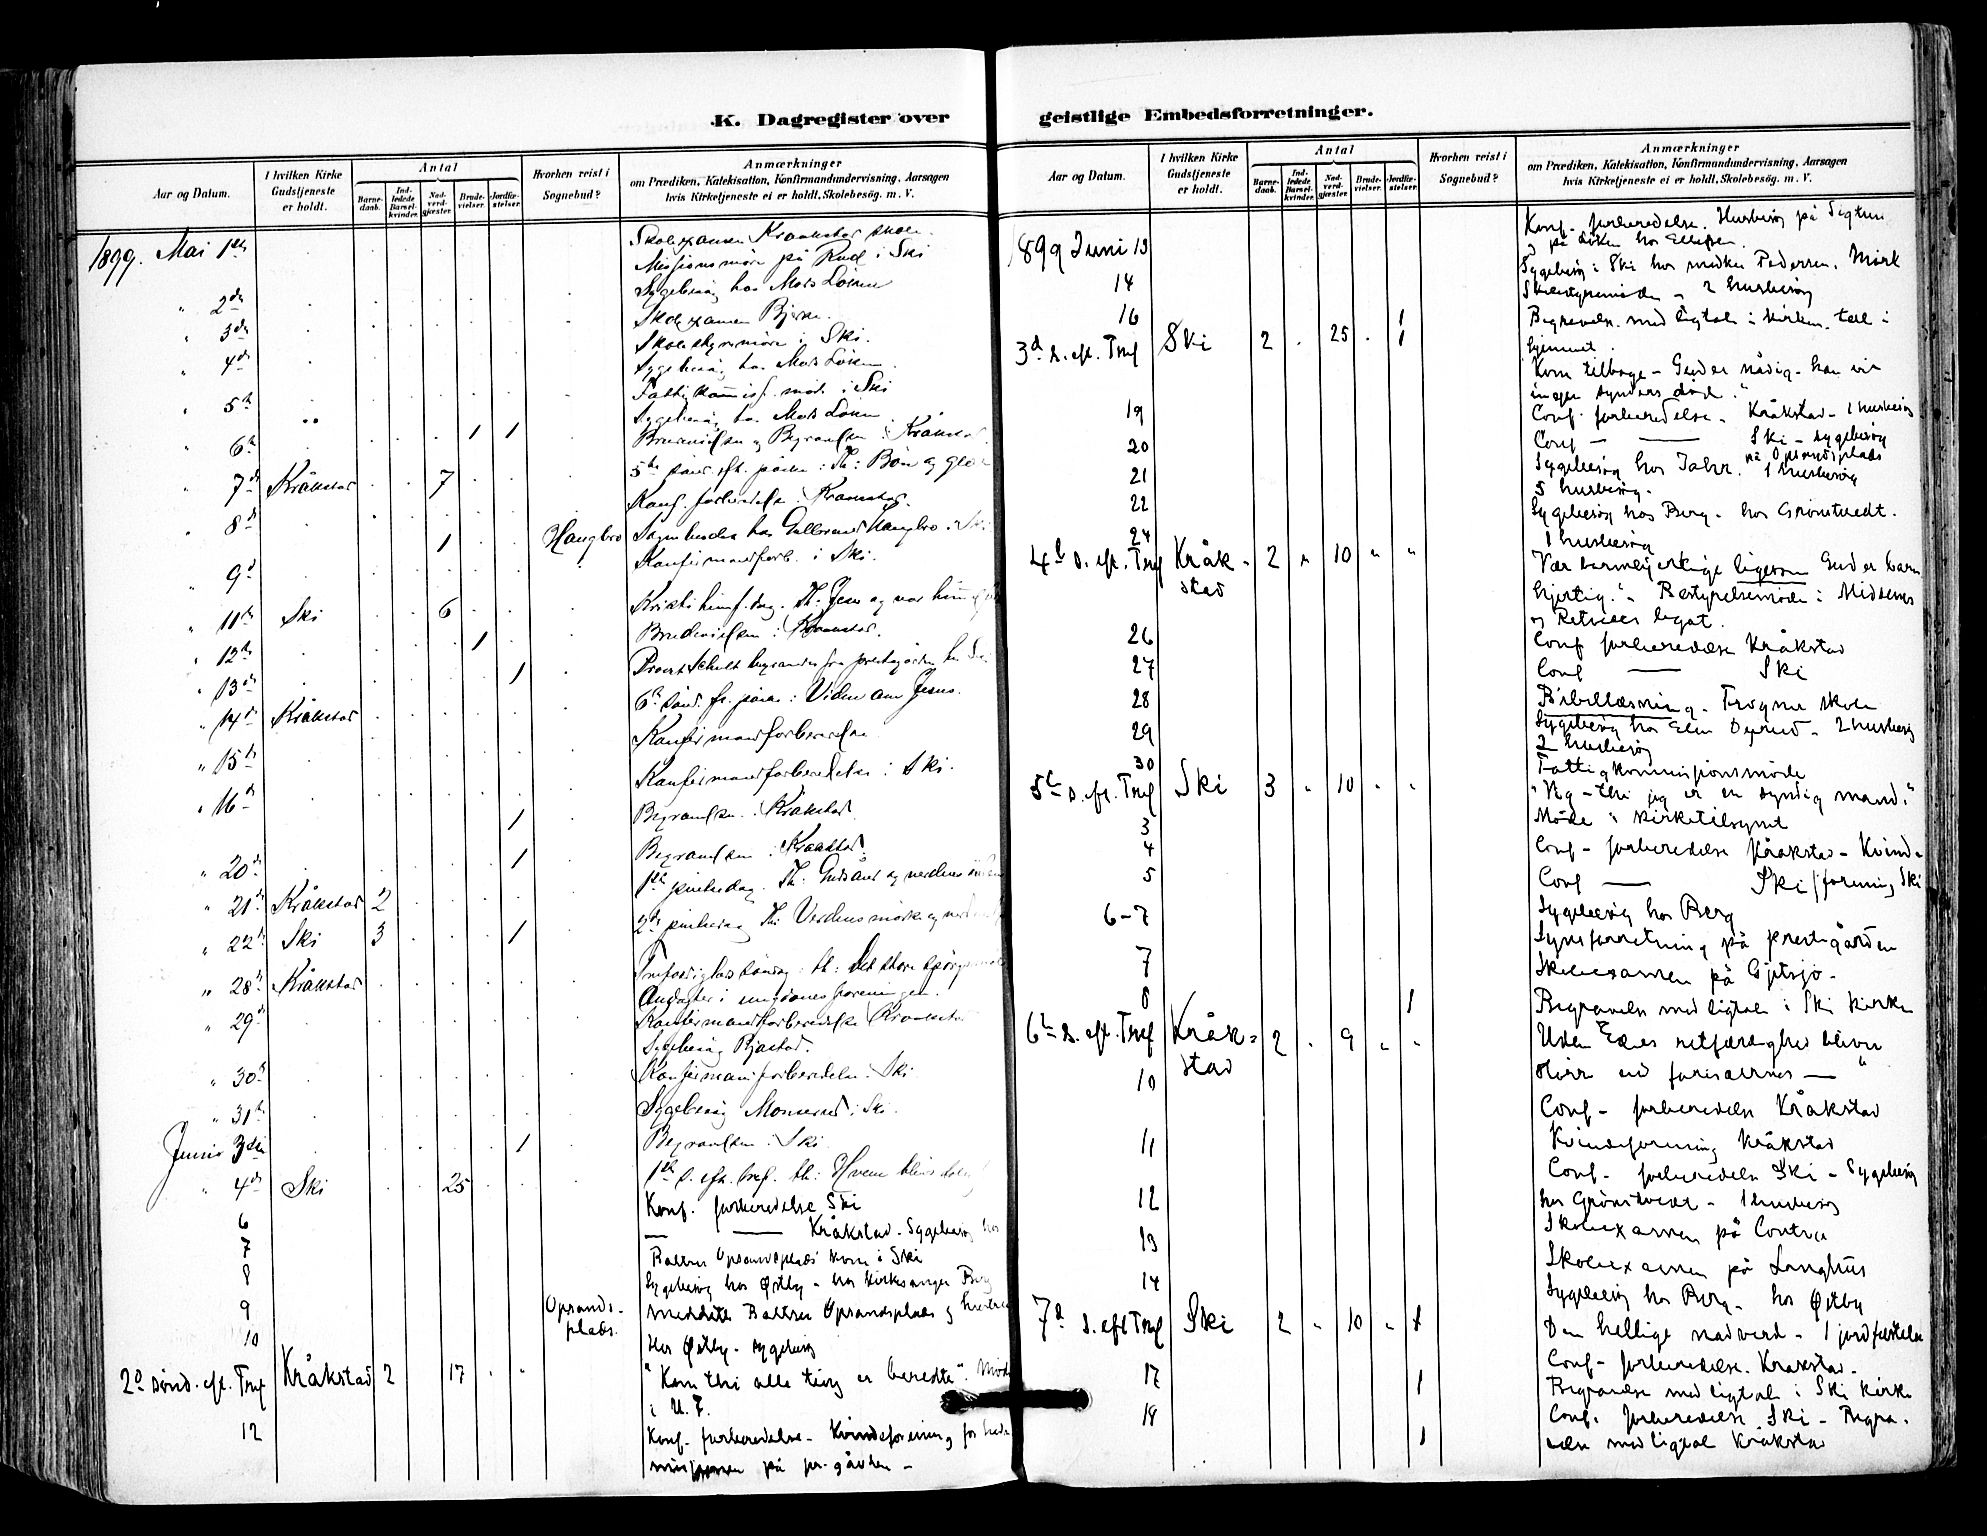 K. Dagregister over
Aar og Datum.
I hvilken Kirke Gudstjeneste er holdt.
Antal
Barne-daab.
Ind-ledede Barsel-kvinder.
Nad-verd-gjæster.
Brude-vielser.
Jordfæ-stelser.
Hvorhen reist i Sognebud?
Anmærkninger
om Prædiken, Katekisation, Konfirmandundervisning, Aarsagen
hvis Kirketjeneste ei er holdt, Skolebesøg. m. V.
1899. Mai 1ste Skolexamen Kraakstad skole.
Missionsmøde på Rud i Ski
" 2de Sygebesøg hos Mads Løken
" 3de Skolexamen Bjerke.
Skolestyremøde i Ski.
" 4de Sygebesøg hos Mads Løken
" 5te Fattigkommiss. møde i Ski
Sygebesøg hos Mads Løken
" 6te 1 1 Brudevielse og Begravelse i Kråkstad
" 7de Kråkstad 7 5te sønd. eft. påske: Th: Bøn og
" 8de Konf. forberedelse Kraakstad.
1 Haugbro Sognebud hos Haugbro i Ski
" 9de Konfirmandforb. i Ski.
" 11te Ski 6 Kristi himf. dag. Th: Jesu og vor
" 12te 1 Brudevielse i Kraakstad.
" 13de 1 Provst Schult begraves fra prestegården
" 14de Kråkstad 6te sønd. Viden om Jesus.
" 15de Konfirmandforberedelse
" 16de Konfirmandforberedelse i Ski.
1 Begravelse i Kråkstad
" 20de 1 Begravelse i Kraakstad.
" 21de Kråkstad 2 1ste pinsedag. Th: Guds ånd og verdens
" 22de Ski 3 1 2de pinsedag Th: Verdens mørke og
" 28de Kråkstad Trefoldigheds søndag: th: Det store
Andagter i ungdomsforeningen.
" 29de Konfirmandforberedelse Kraakstad
Sygebesøg Bjastad.
" 30te Konfirmandforberedelse Ski
" 31te Sygebesøg Monserud i Ski.
Juni 3die 1 Begravelse i Ski
" 4de Ski 25 1ste s. eft. tref. th: Hvem blir
6 Konf. forberedelse Ski
7 — — Kråkstad. Sygebesøg hos
Baltzer Opsandsplads kone i Ski
8 Sygebesøg hos Østby - hos kirkesanger Berg
9 Opsands-plads. meddelte Baltzer Opsandsplads og hustru
10 Hos Østby - sygebesøg
2d sønd. eft. Tref Kråkstad 2 17 " " "Kom thi alle ting er beredte". Møde
i U. F.
12 Konf. forberedelse - Kvindeforening for
missionen på pr. gården -
geistlige Embedsforretninger.
Aar og Datum.
I hvilken Kirke Gudstjeneste er holdt.
Antal
Barne-daab.
Ind-ledede Barsel-kvinder.
Nad-verd-gjæster.
Brude-vielser.
Jordfæ-stelser.
Hvorhen reist i Sognebud?
Anmærkninger
om Prædiken, Katekisation, Konfirmandundervisning, Aarsagen
hvis Kirketjeneste ei er holdt, Skolebesøg. m. V.
1899 Juni 13 Konf. forberedelse. Husbesøg på Sigtun
på Løken hos Ellefsen.
14 Sygebesøg i Ski hos Pedersen. Mørk
Skolestyremøde - 2 husbesøg
16 1 Begravelse med ligtale i kirken. tale i
hjemmet.
3d s. eft. Tref Ski 2 25 1 Kom tilbage - Gud er nådig - han vil
ingen synders død."
19 Conf. forberedelse - Kråkstad - 1 husbesøg
20 Conf — — Ski - sygebesøg
på Opsandsplads
21 Sygebesøg hos Jahr. 1 husbesøg
22 5 husbesøg.
24 Sygebesøg hos Berg - hos Grønstvedt.
1 husbesøg
4de s. eft. Tref Kråk-stad 2 " 10 " " Vær barmhjertige ligesom Gud er barm
hjertig." - Bestyrelsesmøde i
og legat.
26 Conf forberedelse Kråkstad
27 Conf — Ski
28 Bibellæsning. Frogner skole
29 Sygebesøg hos Elen Dyrud - 2 husbesøg
2 husbesøg
30 Fattigkommissionsmøde
5te s. eft. Tref Ski 3 " 10 " " - thi jeg er en syndig mand."
3 Møde " kirketilsynet
4 Conf - forberedelse Kråkstad - Kvinde
5 Conf — Ski / forening Ski
6-7 Sygebesøg hos Berg
7 Synsforretning på prestegården
Skolexamen på Gjetsjø -
8 1 Begravelse med ligtale i Ski kirke
6te s. eft. Tref Kråk-stad 2 " 9 " " Uden Eders retfærdighed bliver
større end farisæernes — "
10 Conf - forberedelse Kråkstad
Kvindeforening Kråkstad
11 Conf - forberedelse Ski - Sygebesøg
hos Grønstvedt - 1 husbesøg
12 Skolexamen på Contra
13 Skolexamen på Langhus
14 Sygebesøg hos Berg - hos Østby
7d s. eft Tref Ski 2 " 10 " 1 Den hellige nadverd - 1 jordfæstelse
17 Conf - forberedelse. Kråkstad -
1 Begravelse med ligtale i Ski kirke
18 Conf. forberedelse Ski - Begra-
1 velse med ligtale Kråkstad